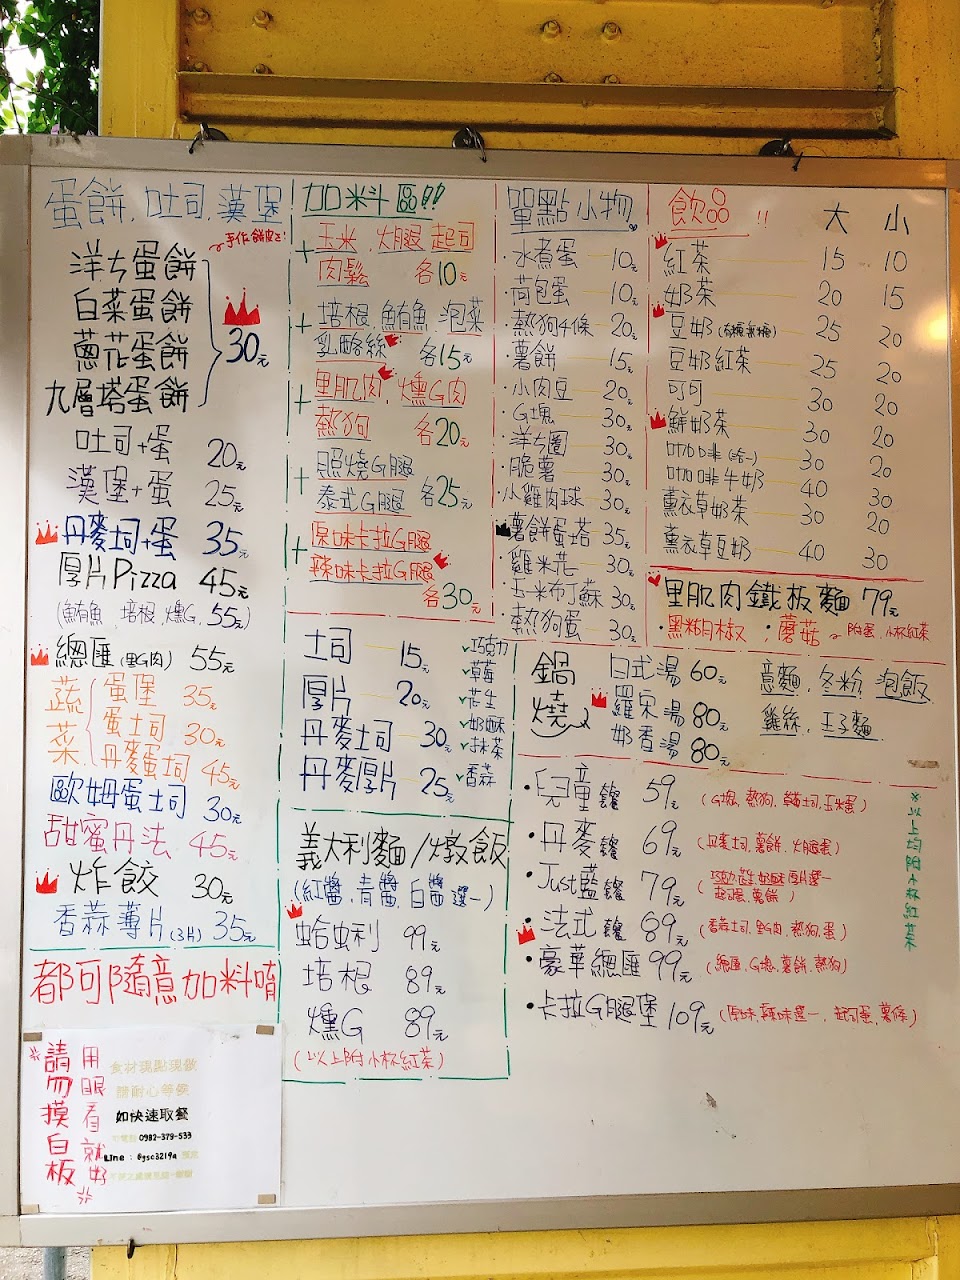 蛋餅.吐司.漢堡
手作餅皮!
洋ㄘ蛋餅
白菜蛋餅
蔥花蛋餅
九層塔蛋餅
30元
吐司+蛋 20元
漢堡+蛋 25元
丹麥土司+蛋 35元
厚片Pizza 45元
(鮪魚.培根.燻G.55元)
總匯(里G肉) 55元
蔬菜
蛋堡 35元
蛋土司 30元
丹麥蛋土司 45元
歐姆蛋土司 30元
甜蜜丹法 45元
炸餃 30元
香蒜薄片(3片) 35元
都可隨意加料唷
請勿摸白板
用眼看就好
食材現點現做
請耐心等侯
如快速取餐
可電話 0982-379-533
Line：8ysc3219a 預定
加料區!!
+玉米.火腿.起司
肉鬆 各10元
+培根.鮪魚.泡菜
乳酪絲 各15元
+里肌肉.燻G肉
熱狗 各20元
+照燒G腿
泰式G腿 各25元
+原味卡拉G腿
辣味卡拉G腿
各30元
土司 15元
厚片 20元
丹麥土司 30元
丹麥厚片 25元
✓巧克力
✓草莓
✓花生
✓奶酥
✓抹茶
✓香蒜
義大利麵/燉飯
(紅醬.青醬.白醬 選一)
蛤蜊 99元
培根 89元
燻G 89元
(以上附小杯紅茶)
單點小物
·水煮蛋 10元
·荷包蛋 10元
·熱狗4條 20元
·薯餅 15元
·小肉豆 20元
·G塊 30元
·洋ㄘ圈 30元
·脆薯 30元
·小雞肉球 30元
·薯餅蛋塔 35元
·雞米花 30元
·玉米布丁酥 30元
·熱狗蛋 30元
飲品!! 大 小
紅茶 15 10
奶茶 20 15
豆奶(有糖.無糖) 25 20
豆奶紅茶 25 20
可可 30 20
鮮奶茶 30 20
咖啡(三合一) 30 20
咖啡牛奶 40 30
薰衣草奶茶 30 20
薰衣草豆奶 40 30
里肌肉鐵板麵 79元
·黑糊椒 ·蘑菇 附蛋.小杯紅茶
鍋燒
日式湯 60元
羅宋湯 80元
奶香湯 80元
意麵.冬粉.泡飯
雞絲.王子麵
·兒童餐 59元 (G塊.熱狗.草莓土司.玉米蛋)
·丹麥餐 69元 (丹麥土司.薯餅.火腿蛋)
·Just藍餐 79元 (巧克力.花生.奶酥厚片選一 起司蛋.薯餅)
·法式餐 89元 (香蒜土司.里G肉.熱狗.蛋)
·豪華總匯 99元 (總匯.G塊.薯餅.熱狗)
·卡拉G腿堡 109元 (原味.辣味選一.起司蛋.薯條)
※以上均附小杯紅茶